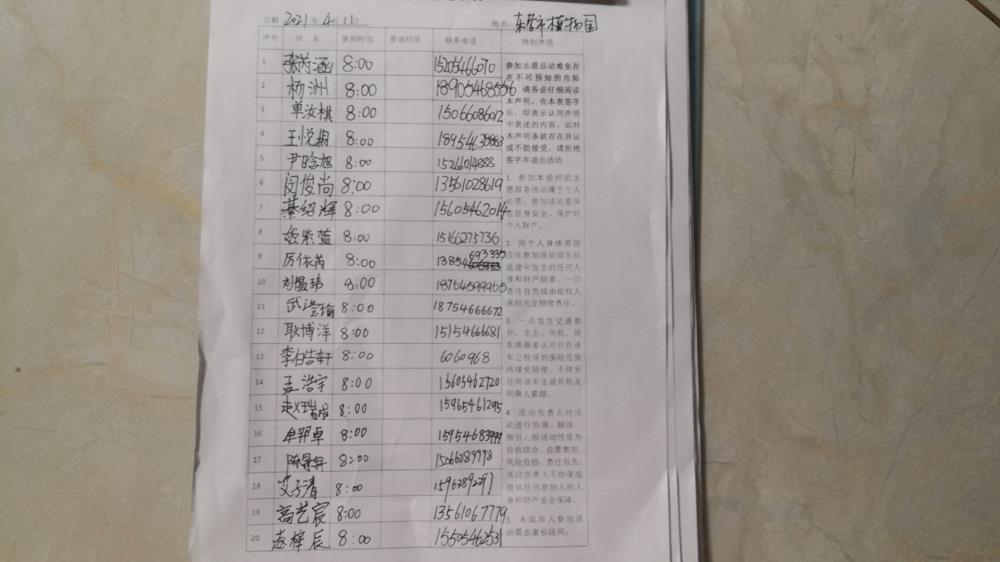 日期 2021 年 4 月 11 日 地点: 东营市植物园
序号 姓 名 签到时间 签退时间 联系电话 特别声明
1 张芮涵 8:00 15205466070
2 杨洲 8:00 18905468556
3 单汝棋 8:00 15066086012
4 王悦翔 8:00
5 尹晗旭 8:00 15266014888
6 闵俊尚 8:00 13561028619
7 綦绍辉 8:00 15605462014
8 姬紫萱 8:00 15166275736
9 厉依芮 8:00 13854693335
10 8:00 18764599965
11 8:00 18754666672
12 耿博洋 8:00 15154666681
13 李柏皓轩 8:00 6060968
14 孟浩宇 8:00 15605462720
15 8:00 15965461295
16 牟羿卓 8:00 15954683999
17 8:00 15066089778
18 艾子清 8:00 15963892297
19 高艺宸 8:00 13561067779
20 赵梓辰 8:00 15505462531
参加志愿活动难免存
在不可预知的危险
,请务必仔细阅读
本声明,在本表签字
后,即表示认同声明
中表述的内容,如对
本声明条款存在异议
或不能接受,请拒绝
签字并退出活动
1. 参加本组织的志
愿服务活动属于个人
自愿,参加活动需保
证自身安全,保护好
个人财产。
2. 因个人身体原因
及在参加活动或在往
返途中发生的任何人
身和财产损害,一切
责任自负或由侵权人
承担完全赔偿责任。
3. 一旦发生交通意
外,车主、司机、同
车搭乘者认可只在该
车已投保的保险范围
内接受赔偿,不得另
行向该车主或司机及
同乘人索赔。
4. 活动负责人对活
动进行协调、联络、
指引,但活动性质为
自由结合、自愿参加、
风险自担、责任自负,
活动负责人不担保或
提供任何参加人的人
身和财产安全保障。
5. 未成年人参加活
动需由家长陪同。